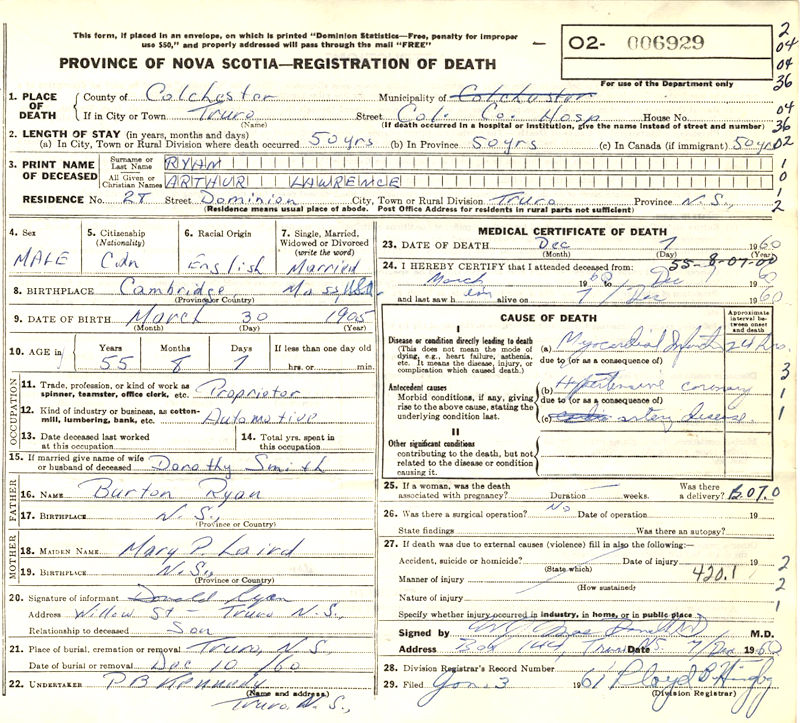 This form, if placed in an envelope, on which is printed "Dominion Statistics—Free, penalty for improper
use $50," and properly addressed will pass through the mail "FREE"
02- 006929
PROVINCE OF NOVA SCOTIA—REGISTRATION OF DEATH
For use of the Department only
2
04
04
36
04
36
02
1
0
1
2
1. PLACE OF DEATH
County of Colchester Municipality of Colchester
If in City or Town Truro Street Col. Co. Hosp House No.
(Name) (If death occurred in a hospital or institution, give the name instead of street and number)
2. LENGTH OF STAY (in years, months and days)
(a) In City, Town or Rural Division where death occurred 50 yrs (b) In Province 50 yrs (c) In Canada (if immigrant) 50 yrs
3. PRINT NAME OF DECEASED
Surname or Last Name RYAN
All Given or Christian Names ARTHUR LAWRENCE
RESIDENCE No. 28 Street Dominion City, Town or Rural Division Truro Province N.S.,
(Residence means usual place of abode. Post Office Address for residents in rural parts not sufficient)
4. Sex
MALE
5. Citizenship
(Nationality)
Cdn
6. Racial Origin
English
7. Single, Married, Widowed or Divorced
(write the word)
Married
8. BIRTHPLACE Cambridge, Mass, USA
(Province or Country)
9. DATE OF BIRTH March 30 1905
(Month) (Day) (Year)
10. AGE in Years Months Days If less than one day old
55 8 7 hrs. or min.
OCCUPATION
11. Trade, profession, or kind of work as spinner, teamster, office clerk, etc. Proprietor
12. Kind of industry or business, as cotton-mill, lumbering, bank, etc. Automotive
13. Date deceased last worked at this occupation
14. Total yrs. spent in this occupation
15. If married give name of wife or husband of deceased Dorothy Smith
FATHER
16. NAME Burton Ryan
17. BIRTHPLACE N.S.,
(Province or Country)
MOTHER
18. MAIDEN NAME Mary P. Laird
19. BIRTHPLACE N.S.,
(Province or Country)
20. Signature of informant Donald Ryan
Address Willow St - Truro N.S.,
Relationship to deceased Son
21. Place of burial, cremation or removal Truro, N.S.
Date of burial or removal Dec 10/60
22. UNDERTAKER P.B. Kennedy
(Name and address)
Truro N.S.,
MEDICAL CERTIFICATE OF DEATH
23. DATE OF DEATH Dec 7 1960
(Month) (Day) (Year)
55-8-07-00
24. I HEREBY CERTIFY that I attended deceased from:
March 1960 to Dec 1960
and last saw him alive on 7/Dec 1960
CAUSE OF DEATH
Approximate interval between onset and death
I
Disease or condition directly leading to death
(This does not mean the mode of dying, e.g., heart failure, asthenia, etc. It means the disease, injury, or complication which caused death.)
(a) Myocardial Infarct 24 hrs.
due to (or as a consequence of)
Antecedent causes
Morbid conditions, if any, giving rise to the above cause, stating the underlying condition last.
(b) Hypertensive coronary
due to (or as a consequence of)
(c) artery disease.
3
1
1
II
Other significant conditions
contributing to the death, but not related to the disease or condition causing it.
25. If a woman, was the death associated with pregnancy? Duration — weeks. Was there a delivery? B.07.0
26. Was there a surgical operation? No Date of operation 19
State findings Was there an autopsy?
27. If death was due to external causes (violence) fill in also the following:—
Accident, suicide or homicide? Date of injury 19
(State which)
Manner of injury 420.1
(How sustained)
Nature of injury
2
2
1
Specify whether injury occurred in industry, in home, or in public place
Signed by M.D.
Address Box 144, Truro N.S. Date 7 Dec 1960
28. Division Registrar's Record Number
29. Filed Jan. 3 1961
(Division Registrar)